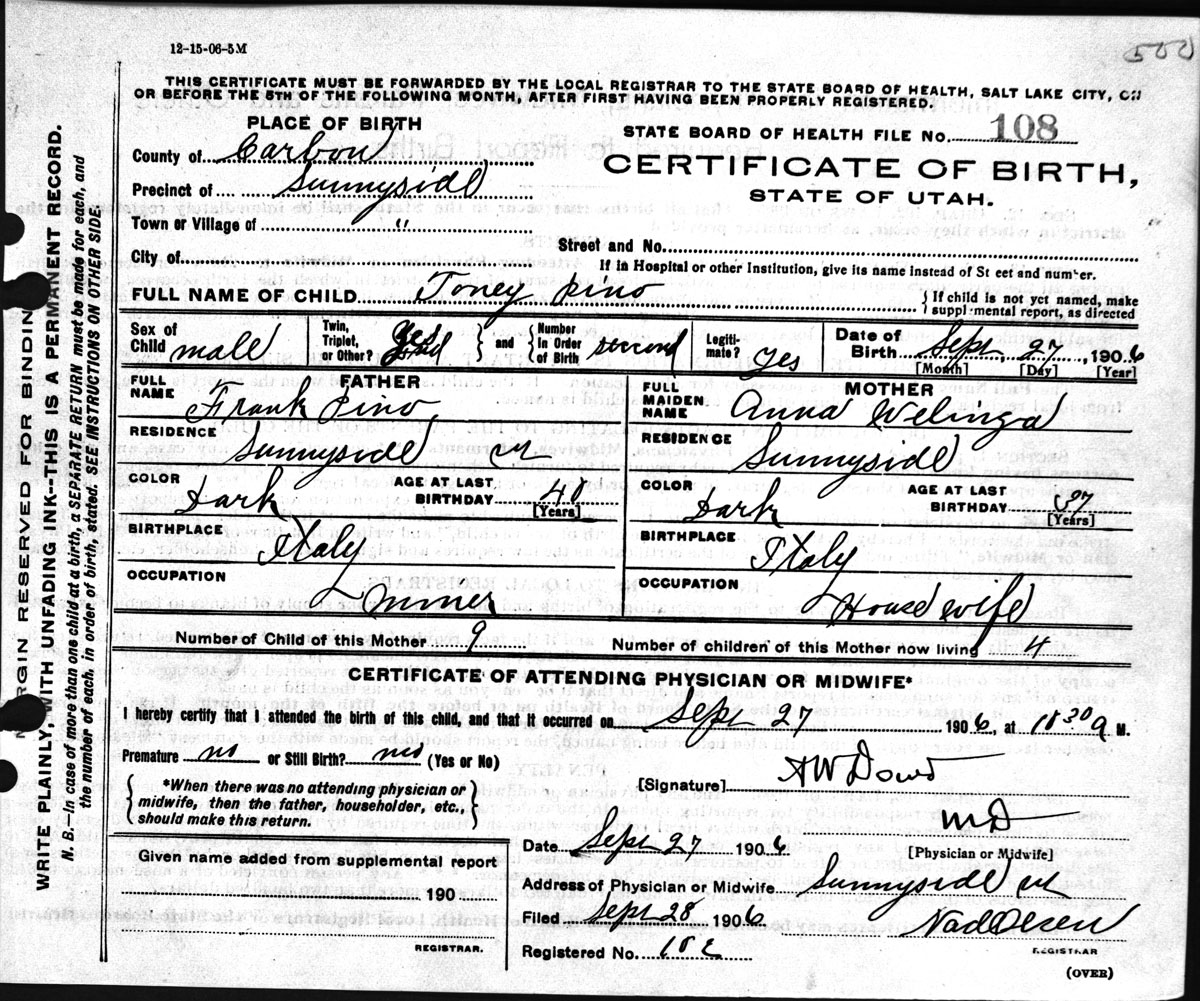 12-15-06-5M
500
THIS CERTIFICATE MUST BE FORWARDED BY THE LOCAL REGISTRAR TO THE STATE BOARD OF HEALTH, SALT LAKE CITY, ON
OR BEFORE THE 5TH OF THE FOLLOWING MONTH, AFTER FIRST HAVING BEEN PROPERLY REGISTERED.
PLACE OF BIRTH
STATE BOARD OF HEALTH FILE No. 108
County of Carbon
CERTIFICATE OF BIRTH,
Precinct of Sunnyside
STATE OF UTAH.
Town or Village of "
Street and No.
City of
If in Hospital or other Institution, give its name instead of St eet and number.
FULL NAME OF CHILD Toney Pino
{ If child is not yet named, make
suppl-mental report, as directed
Sex of Child male
Twin, Triplet, or Other? yes
and
Number in Order of Birth second
Legiti-mate? yes
Date of Birth Sept. 27, 1906
[Month] [Day] [Year]
FATHER
FULL NAME Frank Pino
RESIDENCE Sunnyside
COLOR Dark
AGE AT LAST BIRTHDAY 40
[Years]
BIRTHPLACE Italy
OCCUPATION miner
MOTHER
FULL MAIDEN NAME Anna Welinza
RESIDENCE Sunnyside
COLOR Dark
AGE AT LAST BIRTHDAY 37
[Years]
BIRTHPLACE Italy
OCCUPATION House wife
Number of Child of this Mother 9
Number of children of this Mother now living 4
CERTIFICATE OF ATTENDING PHYSICIAN OR MIDWIFE*
I hereby certify that I attended the birth of this child, and that it occurred on Sept 27 1906, at M.
Premature no or Still Birth? no (Yes or No)
{ *When there was no attending physician or
midwife, then the father, householder, etc.,
should make this return. }
[Signature] AW Dowd
MD
Date Sept 27 1906
[Physician or Midwife]
Given name added from supplemental report
190
Address of Physician or Midwife Sunnyside Ut
Filed Sept 28 1906
REGISTRAR.
Nad Olsen
REGISTRAR
Registered No.
(OVER)
MARGIN RESERVED FOR BINDING
WRITE PLAINLY, WITH UNFADING INK--THIS IS A PERMANENT RECORD.
N. B.--In case of more than one child at a birth, a SEPARATE RETURN must be made for each, and
the number of each, in order of birth, stated. SEE INSTRUCTIONS ON OTHER SIDE.